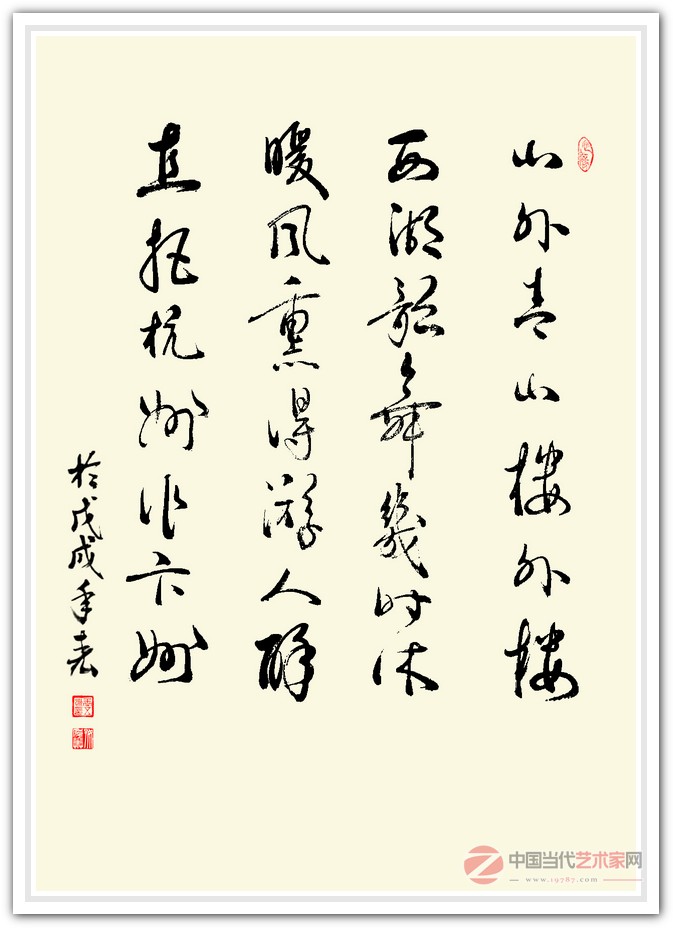 山外青山樓外樓
西湖歌舞幾时休
暖风熏得游人醉
直把杭州作卞州
於戊戌年春
中国当代艺术家网
www.19787.com